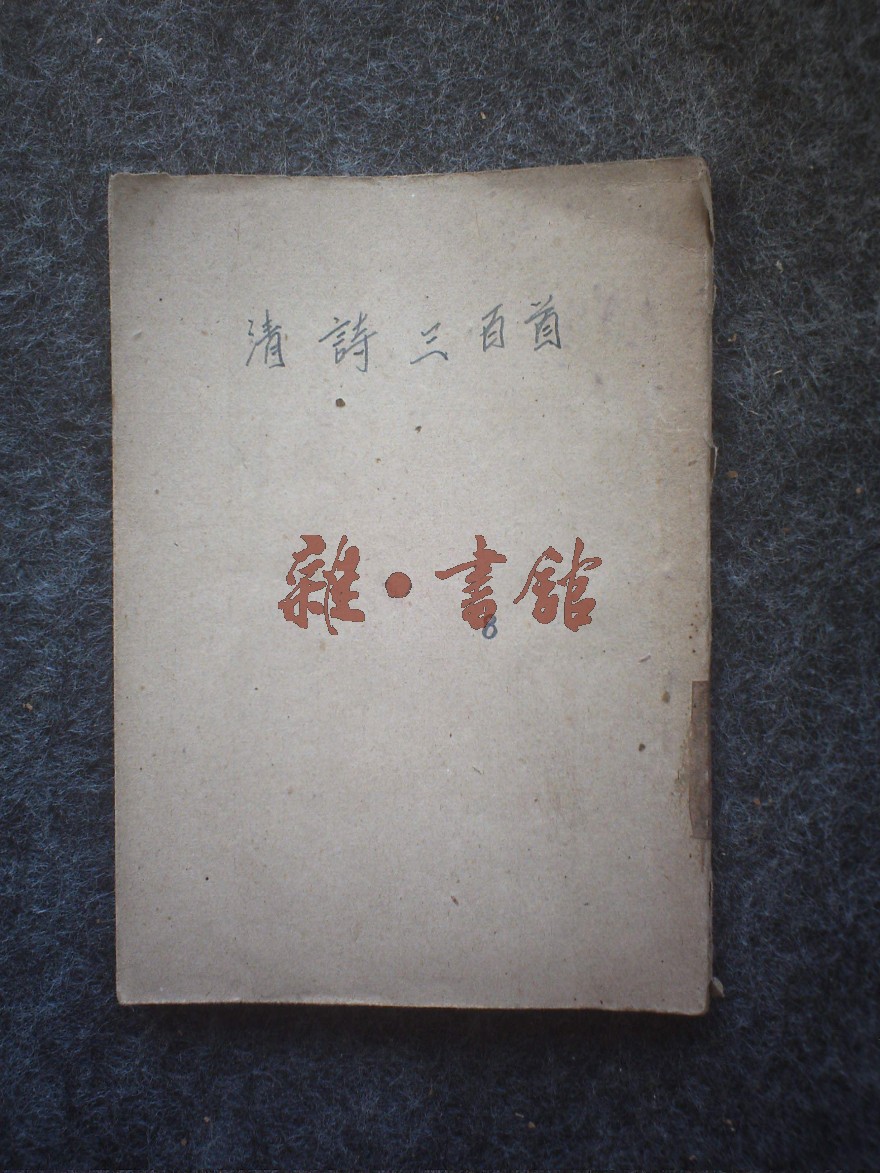 清詩三百首
雜·書館
8